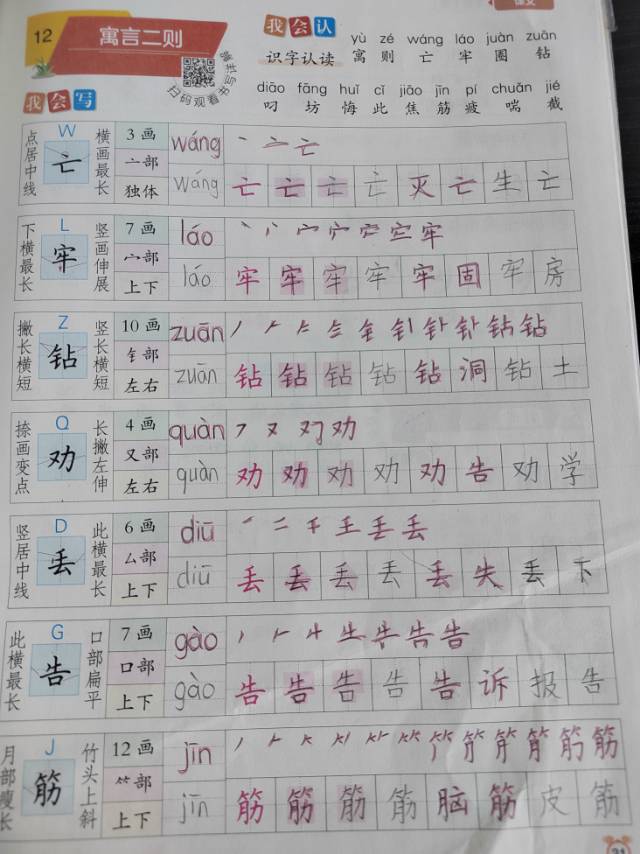 课文
12 寓言二则
扫码观看书写示范
我会认
识字认读
yù zé wáng láo juàn zuān
寓 则 亡 牢 圈 钻
diāo fāng huǐ cǐ jiāo jīn pí chuǎn jié
叼 坊 悔 此 焦 筋 疲 喘 截
我会写
点居中线 W 亡 横画最长 3画 亠部 独体 wáng
wáng 亡 亡 亡 亡 灭 亡 生 亡
下横最长 L 牢 竖画伸展 7画 宀部 上下 láo
láo 牢 牢 牢 牢 牢 固 牢 房
撇长横短 Z 钻 竖长横短 10画 钅部 左右 zuān
zuān 钻 钻 钻 钻 钻 洞 钻 土
捺画变点 Q 劝 长撇左伸 4画 又部 左右 quàn
quàn 劝 劝 劝 劝 劝 告 劝 学
竖居中线 D 丢 此横最长 6画 厶部 上下 diū
diū 丢 丢 丢 丢 丢 失 丢 下
此横最长 G 告 口部扁平 7画 口部 上下 gào
gào 告 告 告 告 告 诉 报 告
月部瘦长 J 筋 竹头上斜 12画 ⺮部 上下 jīn
jīn 筋 筋 筋 筋 脑 筋 皮 筋
31